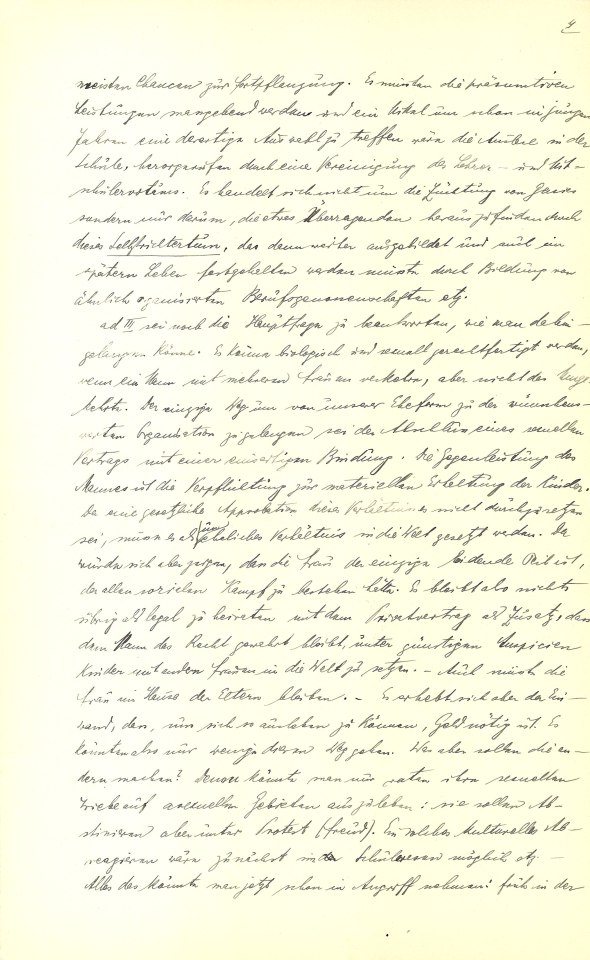 4
meisten Chancen zur Fortpflanzung. Es müssten die präsumtiven
Leistungen massgebend werden und ein Mittel um schon in jungen
Jahren eine derartige Auswahl zu treffen wäre die Auslese in der
Schule, hervorgerufen durch eine Vereinigung des Lehrer- und Mit-
schülervotums. Es handelt sich nicht um die Züchtung von Genies
sondern nur darum, die etwas Überragenden herauszufinden durch
dieses Selbstrichtertum, das dann weiter ausgebildet und auch im
spätern Leben festgehalten werden müsste durch Bildung von
ähnlich organisierten Berufsgenossenschaften etz.
ad III sei noch die Hauptfrage zu beantworten, wie man dahin
gelangen könne. Es könne biologisch und sexuell gerechtfertigt werden,
wenn ein Mann mit mehreren Frauen verkehre, aber nicht das Umge-
kehrte. Der einzige Weg um von unserer Eheform zu der wünschens-
werten Organisation zu gelangen sei der Abschluss eines sexuellen
Vertrags mit einer einseitigen Bindung. Die Gegenleistung des
Mannes ist die Verpflichtung zur materiellen Erhaltung der Kinder.
Da eine gesetzliche Approbation dieses Verhältnisses nicht durchzusetzen
sei, müsse es als uneheliches Verhältnis in die Welt gesetzt werden. Da
würde sich aber zeigen, dass die Frau der einzige leidende Teil ist,
der allen sozialen Kampf zu bestehen hätte. Es bleibt als nichts
übrig als legal zu heiraten mit dem Privatvertrag als Zusatz, dass
dem Mann das Recht gewahrt bleibt, unter günstigen Auspicien
Kinder mit andern Frauen in die Welt zu setzen. – Auch müsste die
Frau im Hause der Eltern bleiben. – Es erhebt sich aber der Ein-
wand, dass, um sich so ausleben zu können, Geld nötig ist. Es
könnten also nur wenige diesen Weg gehen. Was aber sollen die an-
dern machen? Denen könnte man nur raten ihre sexuellen
Triebe auf asexuellen Gebieten auszuleben: sie sollen Ab-
stinieren aber unter Protest (Freud). Ein solches kulturelles Ab-
reagieren wäre zunächst in der Schülerwesen möglich etz –
Alles das könnte man jetzt schon in Angriff nehmen: früh in der